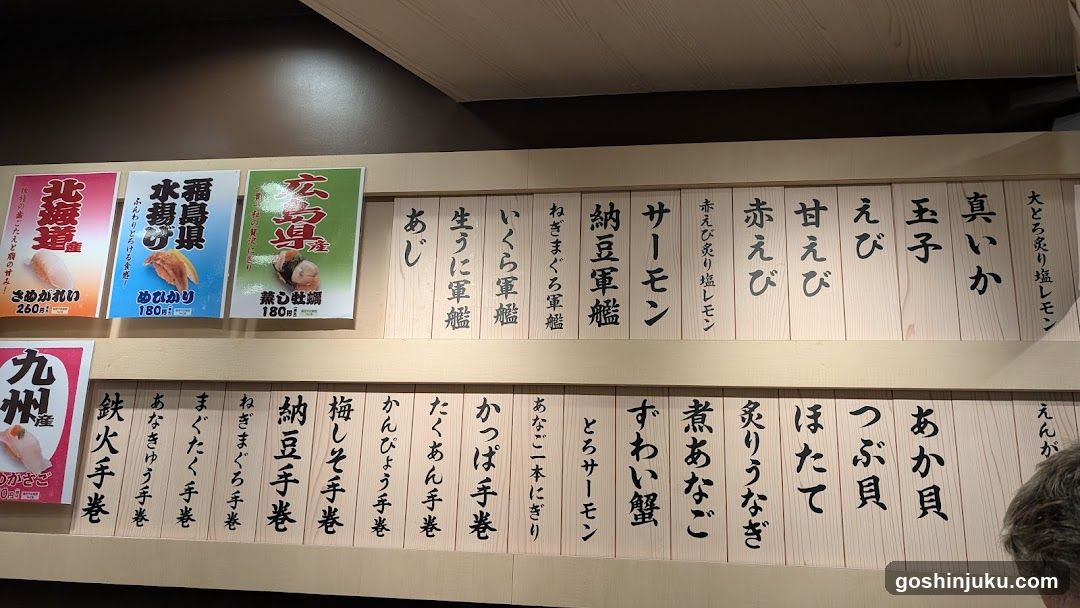 北海道産
さめがれい
260円
福島県
水揚げ
ふんわりとろける食感!
めひかり
180円
広島県産
蒸し牡蠣
180円
九州産
大とろ炙り塩レモン
真いか
玉子
えび
甘えび
赤えび
赤えび炙り塩レモン
サーモン
納豆軍艦
ねぎまぐろ軍艦
いくら軍艦
生うに軍艦
あじ
えんが
あか貝
つぶ貝
ほたて
炙りうなぎ
煮あなご
ずわい蟹
とろサーモン
あなご一本にぎり
かっぱ手巻
たくあん手巻
かんぴょう手巻
梅しそ手巻
納豆手巻
ねぎまぐろ手巻
まぐたく手巻
あなきゅう手巻
鉄火手巻
goshinjuku.com